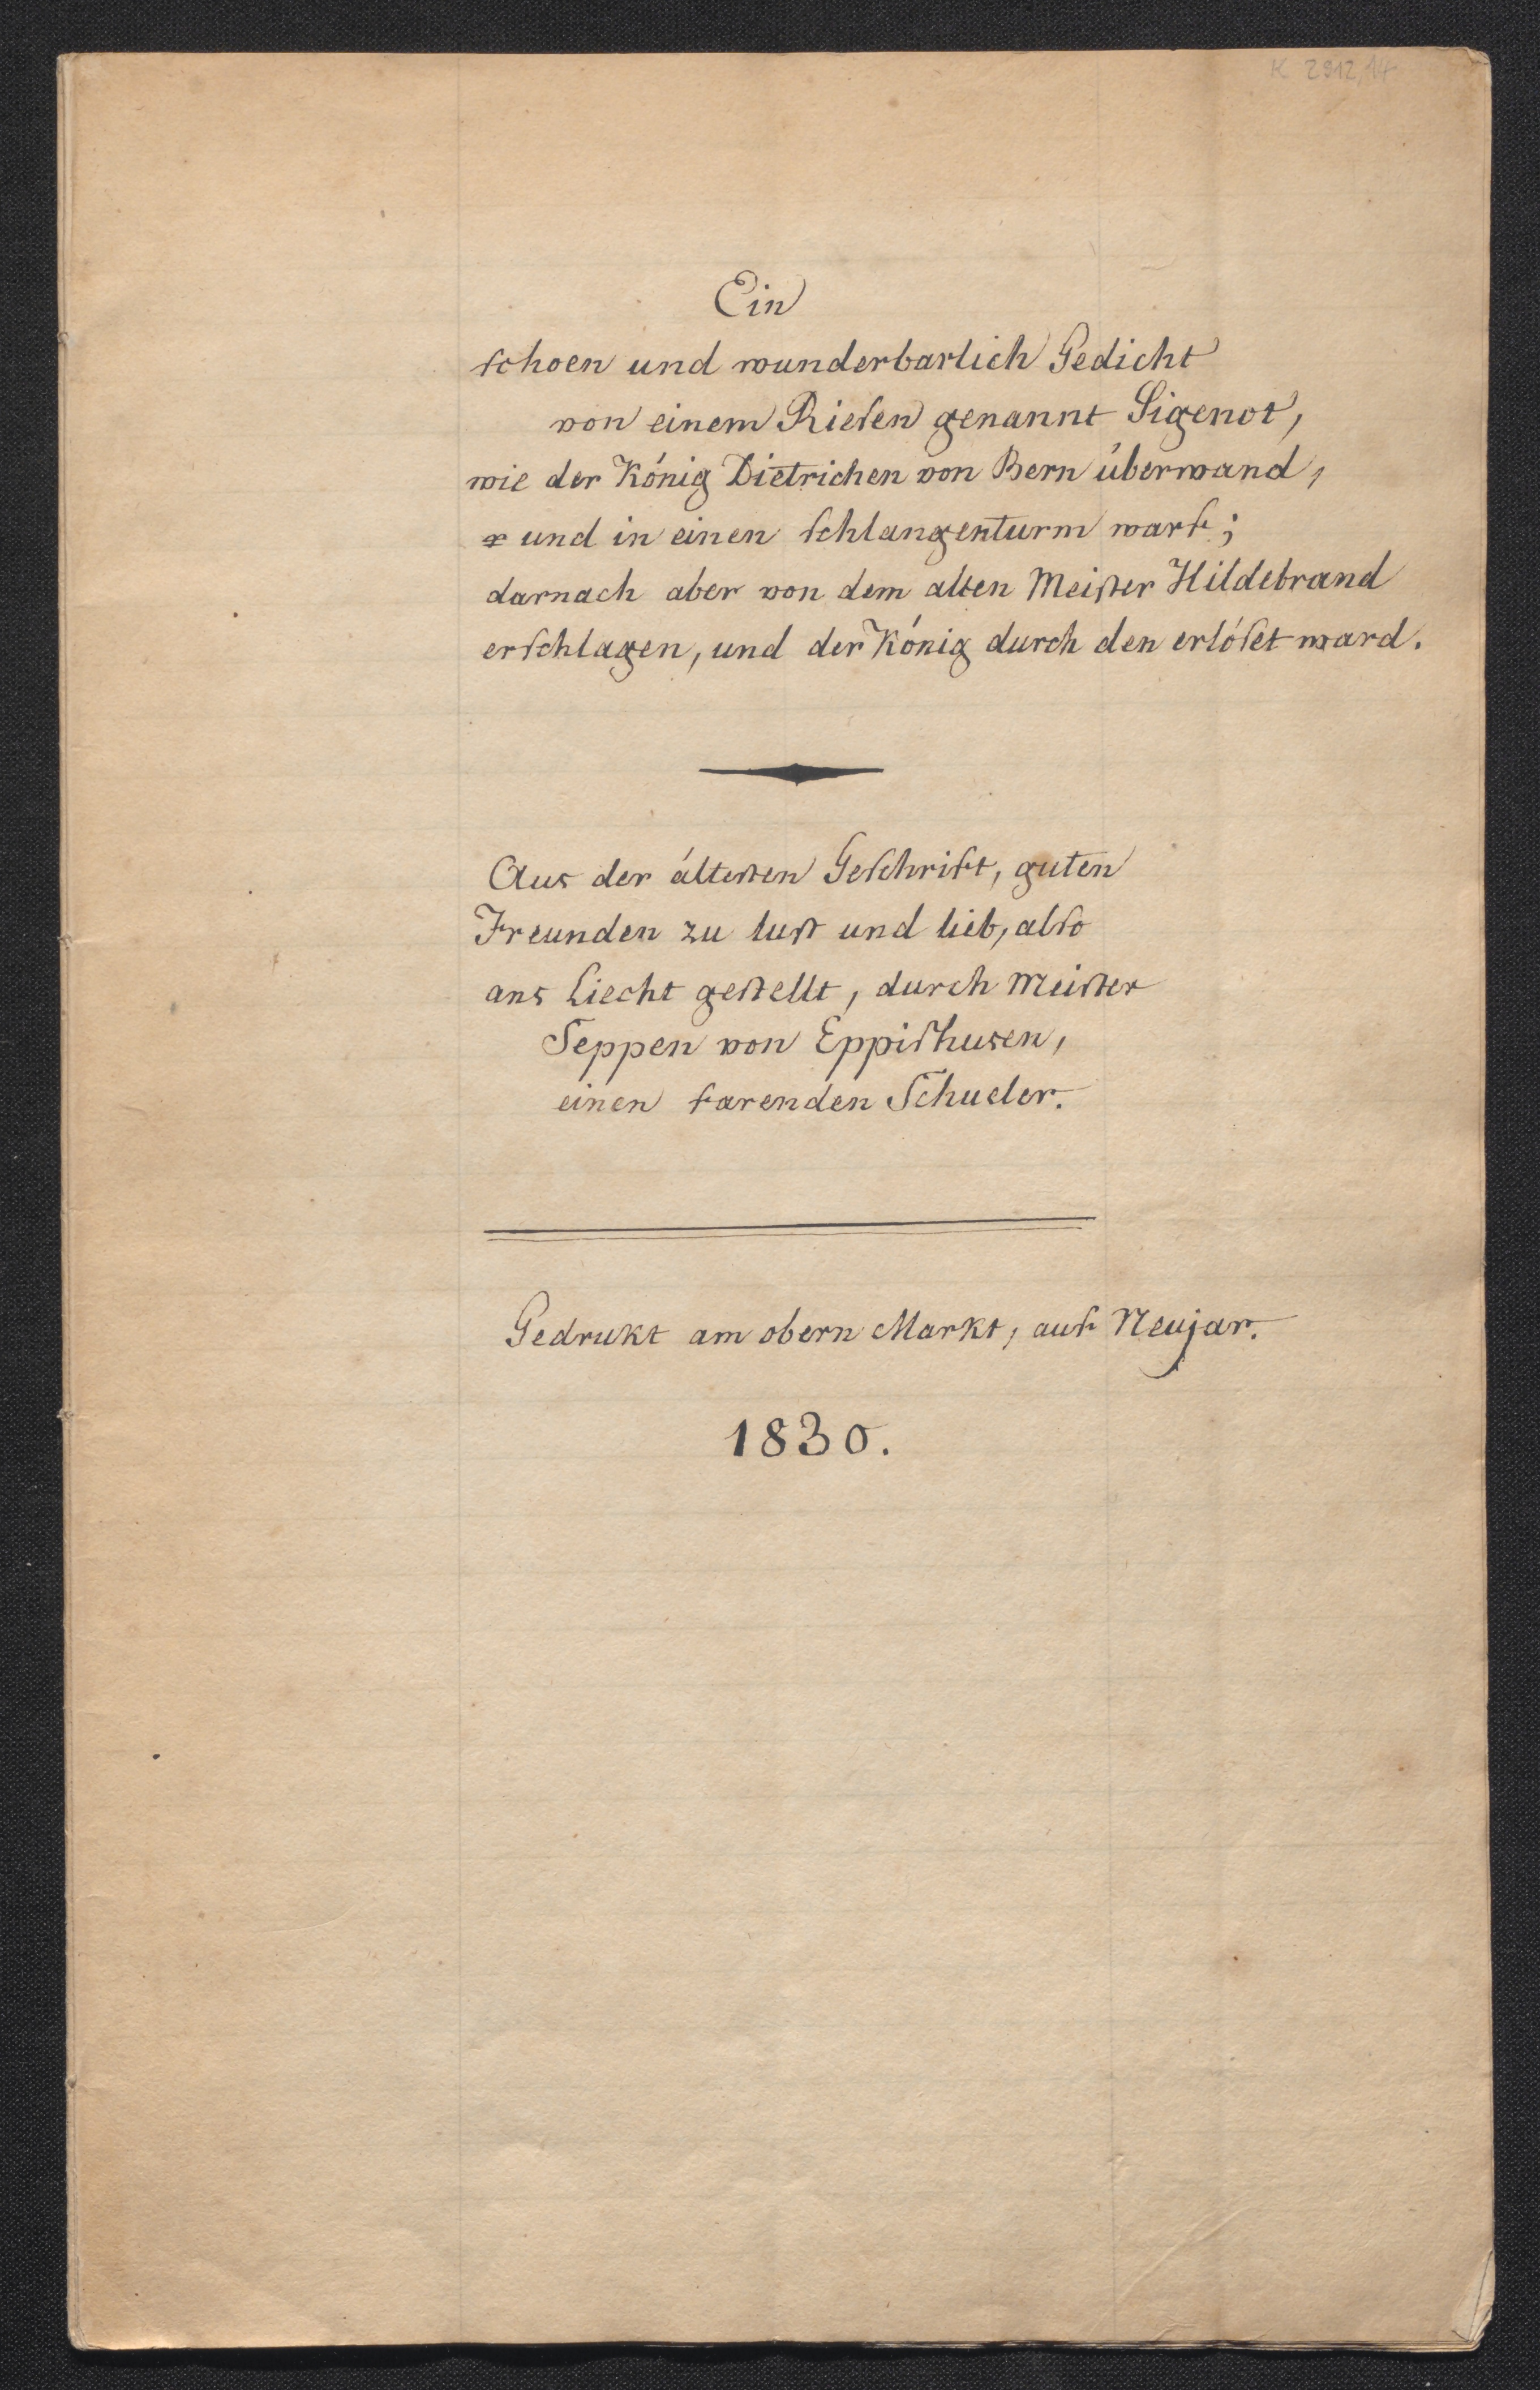 K 2912,14
Ein
schoen und wunderbarlich Gedicht
von einem Riesen genannt Sigenot,
wie der König Dietrichen von Bern überwand,
und in einen schlangenturm warf;
darnach aber von dem alten Meister Hildebrand
erschlagen, und der König durch den erlöset ward.
Aus der ältesten Geschrift, guten
Freunden zu lust und lieb, also
ans Liecht gestellt, durch Meister
Seppen von Eppishusen,
einen farenden Schueler.
Gedrukt am obern Markt, auf Neujar.
1830.